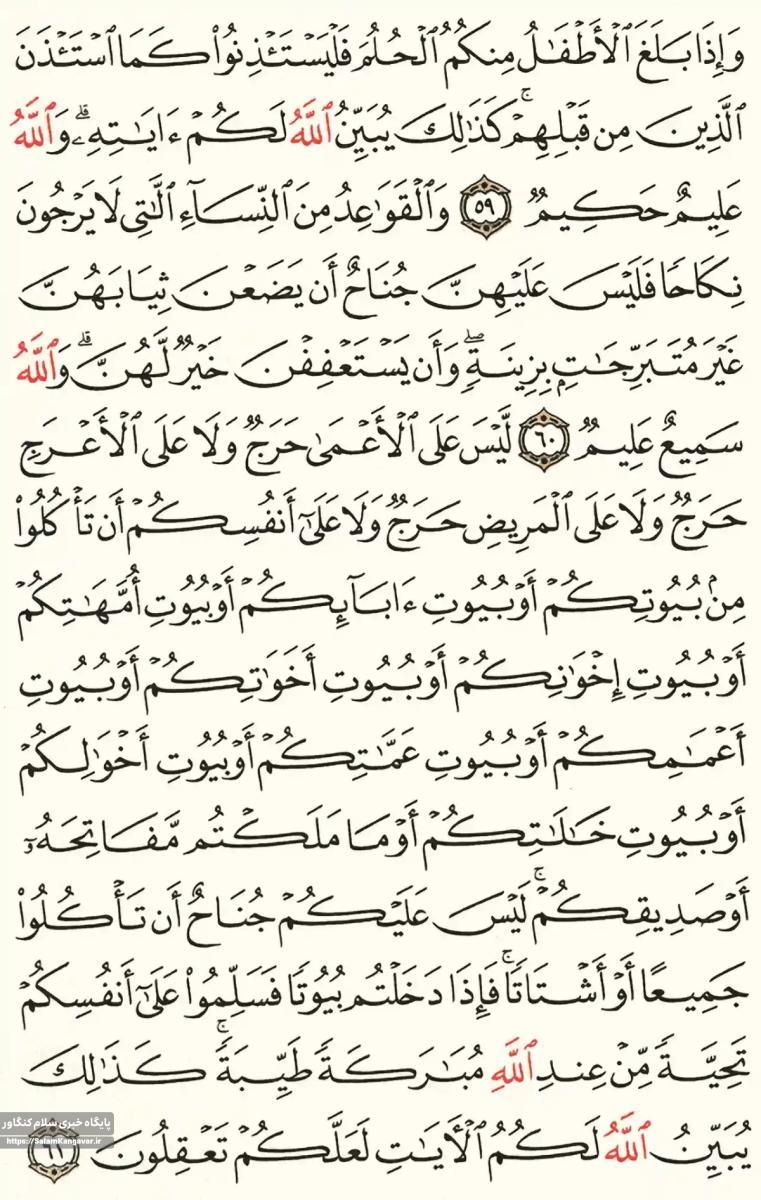 وَإِذَا بَلَغَ ٱلْأَطْفَٰلُ مِنكُمُ ٱلْحُلُمَ فَلْيَسْتَـْٔذِنُوا۟ كَمَا ٱسْتَـْٔذَنَ
ٱلَّذِينَ مِن قَبْلِهِمْ ۚ كَذَٰلِكَ يُبَيِّنُ ٱللَّهُ لَكُمْ ءَايَٰتِهِۦ ۗ وَٱللَّهُ
عَلِيمٌ حَكِيمٌ ۝٥٩ وَٱلْقَوَٰعِدُ مِنَ ٱلنِّسَآءِ ٱلَّٰتِى لَا يَرْجُونَ
نِكَاحًا فَلَيْسَ عَلَيْهِنَّ جُنَاحٌ أَن يَضَعْنَ ثِيَابَهُنَّ
غَيْرَ مُتَبَرِّجَٰتٍۭ بِزِينَةٍ ۖ وَأَن يَسْتَعْفِفْنَ خَيْرٌ لَّهُنَّ ۗ وَٱللَّهُ
سَمِيعٌ عَلِيمٌ ۝٦٠ لَّيْسَ عَلَى ٱلْأَعْمَىٰ حَرَجٌ وَلَا عَلَى ٱلْأَعْرَجِ
حَرَجٌ وَلَا عَلَى ٱلْمَرِيضِ حَرَجٌ وَلَا عَلَىٰٓ أَنفُسِكُمْ أَن تَأْكُلُوا۟
مِنۢ بُيُوتِكُمْ أَوْ بُيُوتِ ءَابَآئِكُمْ أَوْ بُيُوتِ أُمَّهَٰتِكُمْ
أَوْ بُيُوتِ إِخْوَٰنِكُمْ أَوْ بُيُوتِ أَخَوَٰتِكُمْ أَوْ بُيُوتِ
أَعْمَٰمِكُمْ أَوْ بُيُوتِ عَمَّٰتِكُمْ أَوْ بُيُوتِ أَخْوَٰلِكُمْ
أَوْ بُيُوتِ خَٰلَٰتِكُمْ أَوْ مَا مَلَكْتُم مَّفَاتِحَهُۥٓ
أَوْ صَدِيقِكُمْ ۚ لَيْسَ عَلَيْكُمْ جُنَاحٌ أَن تَأْكُلُوا۟
جَمِيعًا أَوْ أَشْتَاتًا ۚ فَإِذَا دَخَلْتُم بُيُوتًا فَسَلِّمُوا۟ عَلَىٰٓ أَنفُسِكُمْ
تَحِيَّةً مِّنْ عِندِ ٱللَّهِ مُبَٰرَكَةً طَيِّبَةً ۚ كَذَٰلِكَ
يُبَيِّنُ ٱللَّهُ لَكُمُ ٱلْءَايَٰتِ لَعَلَّكُمْ تَعْقِلُونَ ۝٦١
پایگاه خبری سلام کنگاور
https://SalamKangavar.ir